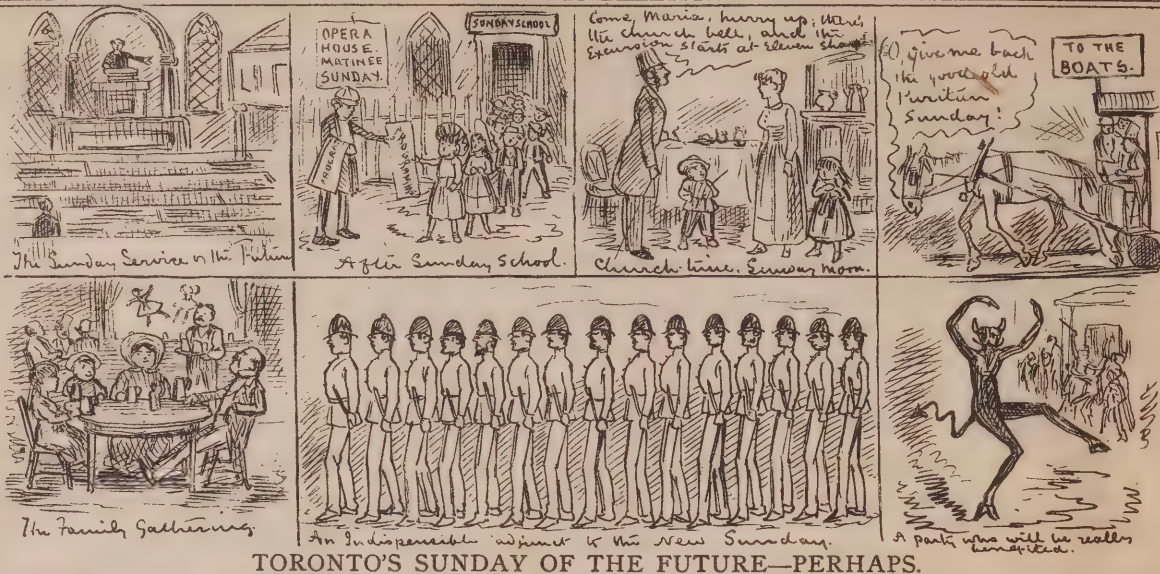 The Sunday Service of the Future
OPERA
HOUSE.
MATINEE
SUNDAY.
SUNDAY SCHOOL
After Sunday School.
Come, Maria, hurry up; there's
the church bell, and the
Excursion starts at Eleven sharp
Church-time. Sunday morn.
O, give me back
the good old
Puritan
Sunday!
TO THE
BOATS.
The Family Gathering
An Indispensible adjunct to the New Sunday.
A party who will be really
benefited.
TORONTO'S SUNDAY OF THE FUTURE—PERHAPS.